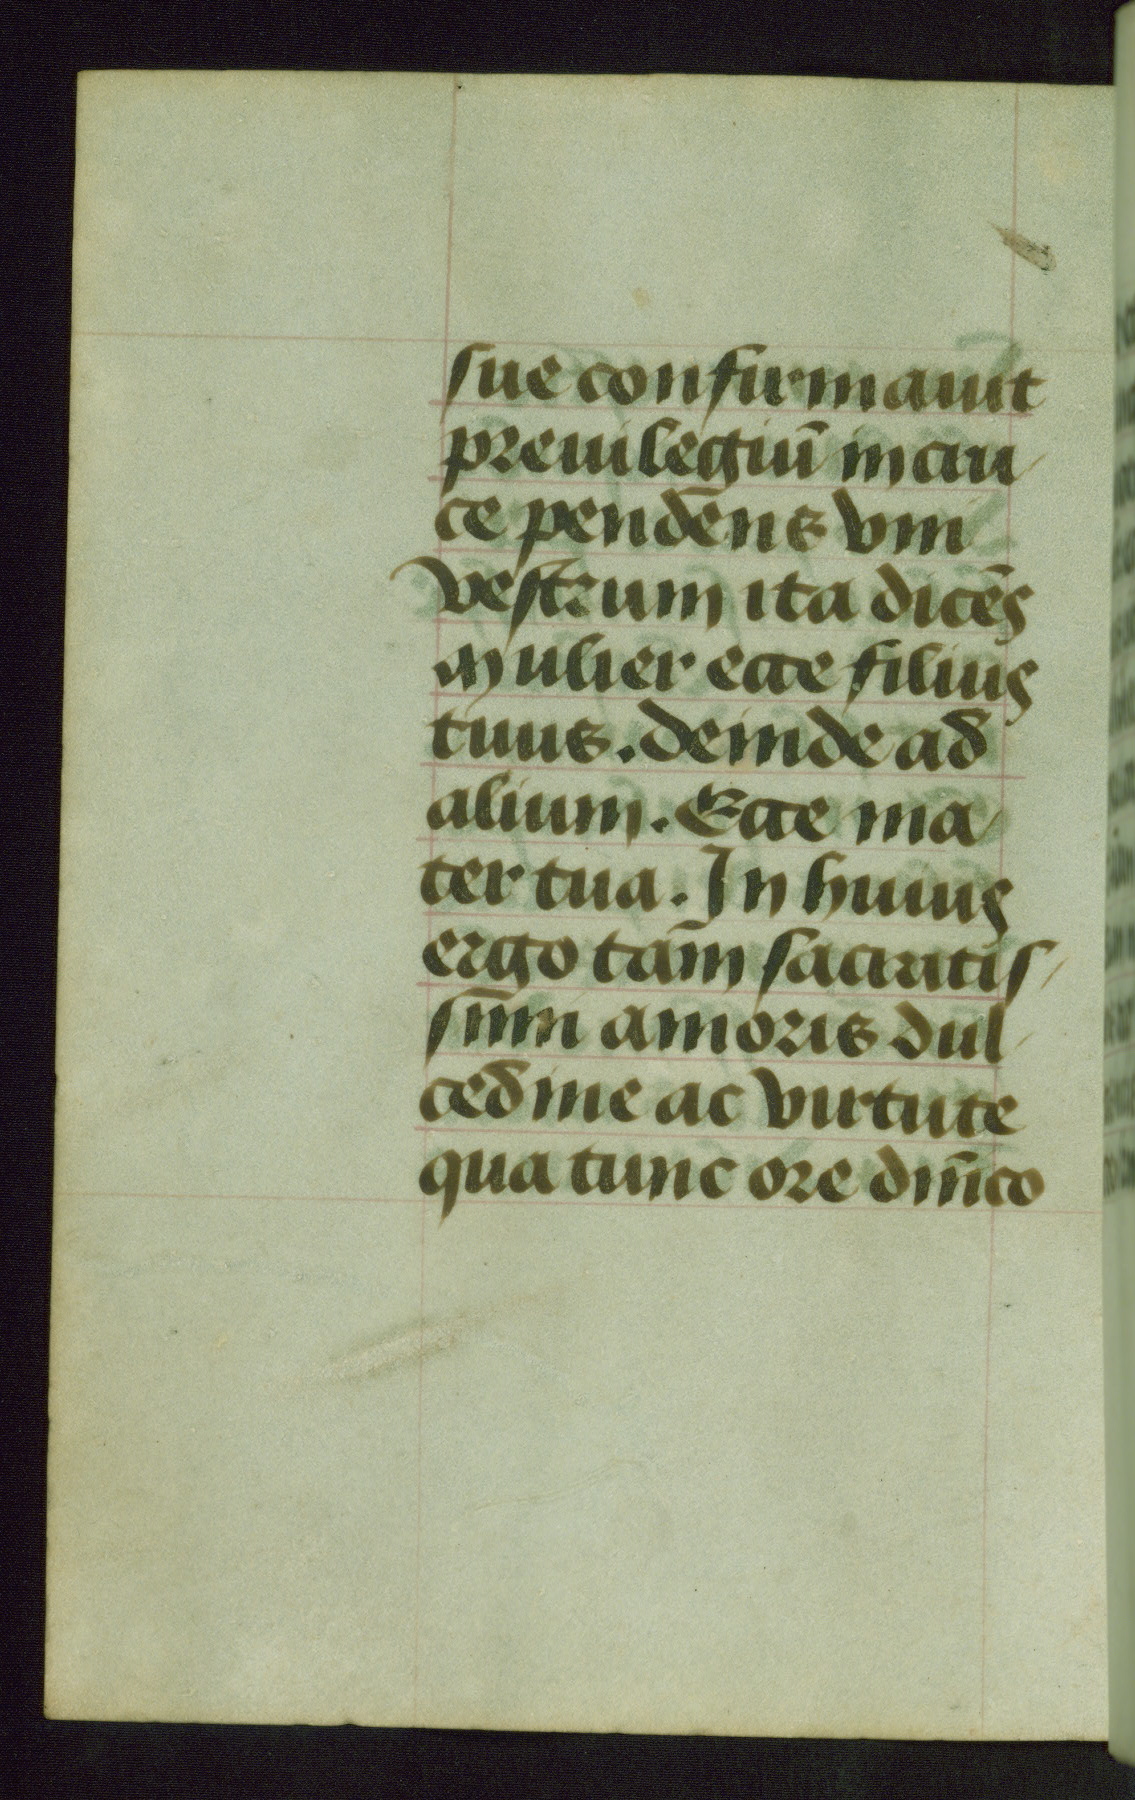 sue confirmauit
preuilegiuʒ in cru
ce pendens vni
vestrum ita dicēs
mulier ecce filius
tuus. deinde ad
alium. Ecce ma
ter tua. In huius
ergo tam sacratis
simi amoris dul
cedine ac virtute
qua tunc ore dn̄ico